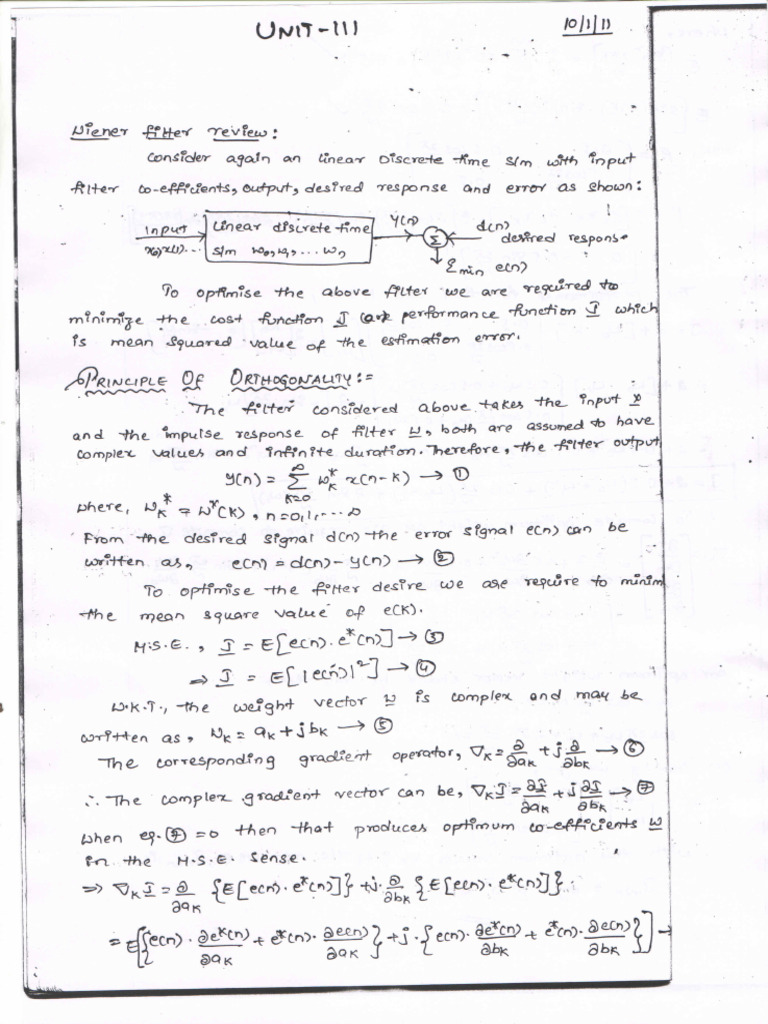 UNIT-III
10/1/11
Wiener filter review:
Consider again an linear Discrete time s/m with input
filter co-efficients, output, desired response and error as shown:
Input
x(0),x(1)...
Linear discrete time
s/m w₀,w₁,... wₙ
y(n)
Σ
d(n)
desired respons
ξmin e(n)
To optimise the above filter we are required to
minimize the cost function J (or) performance function J which
is mean squared value of the estimation error.
PRINCIPLE OF ORTHOGONALITY:=
The filter considered above takes the input x
and the impulse response of filter w, both are assumed to have
complex values and infinite duration. Therefore, the filter output,
y(n) = ∞∑k=0 wₖ* x(n-k) → ①
where, wₖ* = w*(k), n=0,1,... ∞
From the desired signal d(n) the error signal e(n) can be
written as, e(n) = d(n) - y(n) → ②
To optimise the filter desire we are require to minim
the mean square value of e(k).
M.S.E., J = E[e(n).e*(n)] → ③
⇒ J = E[|e(n)|²] → ④
W.K.T., the weight vector w is complex and may be
written as, wₖ = aₖ + jbₖ → ⑤
The corresponding gradient operator, ∇ₖ = ∂/∂aₖ + j ∂/∂bₖ → ⑥
∴ The complex gradient vector can be, ∇ₖJ = ∂J/∂aₖ + j ∂J/∂bₖ → ⑦
when eq.⑦ =0 then that produces optimum co-efficients w
in the M.S.E. sense.
⇒ ∇ₖJ = ∂/∂aₖ {E[e(n).e*(n)]} + j. ∂/∂bₖ {E[e(n).e*(n)]}
= E[{e(n). ∂e*(n)/∂aₖ + e*(n). ∂e(n)/∂aₖ} + j.{e(n). ∂e*(n)/∂bₖ + e*(n). ∂e(n)/∂bₖ}] →